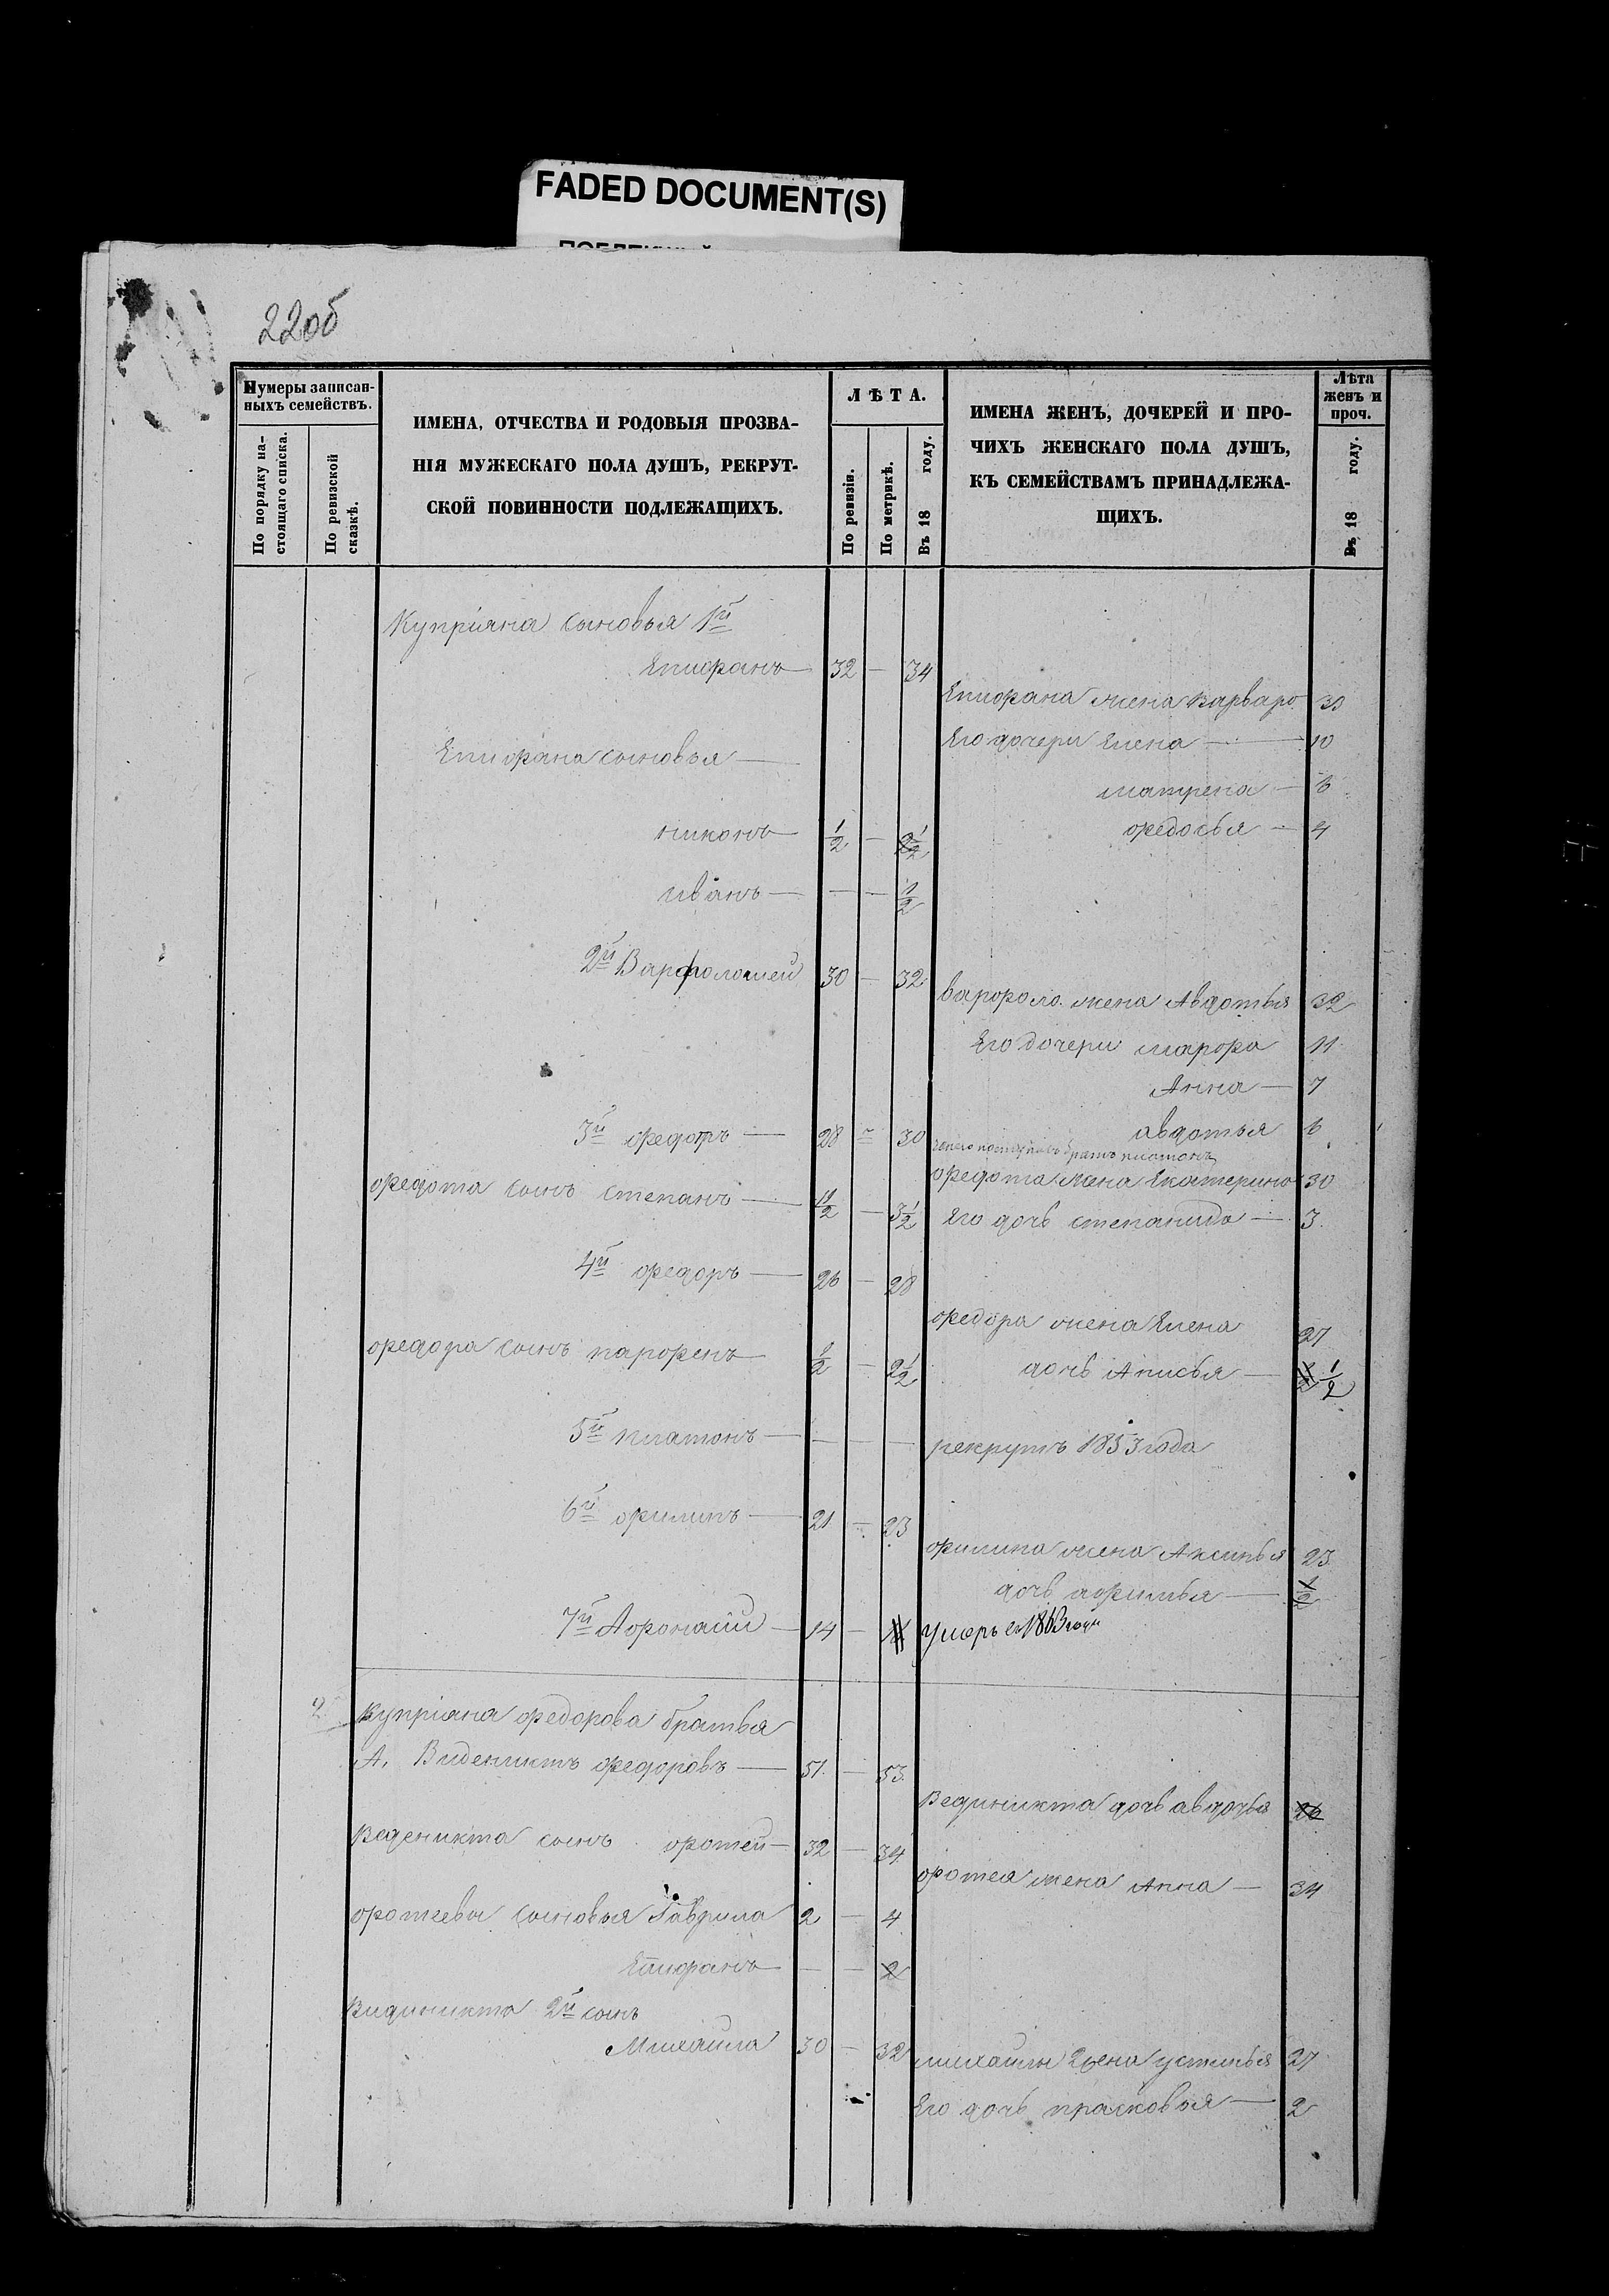 FADED DOCUMENT(S)
22об
Нумеры записан-
ныхъ семействъ.
По порядку на-
стоящаго списка.
По ревизской
сказкѣ.
ИМЕНА, ОТЧЕСТВА И РОДОВЫЯ ПРОЗВА-
НІЯ МУЖЕСКАГО ПОЛА ДУШЪ, РЕКРУТ-
СКОЙ ПОВИННОСТИ ПОДЛЕЖАЩИХЪ.
ЛѢТА.
По ревизіи.
По метрикѣ.
Въ 18 году.
ИМЕНА ЖЕНЪ, ДОЧЕРЕЙ И ПРО-
ЧИХЪ ЖЕНСКАГО ПОЛА ДУШЪ,
КЪ СЕМЕЙСТВАМЪ ПРИНАДЛЕЖА-
ЩИХЪ.
Лѣта
женъ и
проч.
Въ 18 году.
Купріяна сыновья 1й
Епифанъ — 32 — 34
Епифана жена Варвара 33
Его дочери Елена — 10
Епифана сыновья —
матрена — 6
никонъ — 1/2 — 2 1/2
федосья — 4
иванъ — — — 1/2
2й Варфоломей 30 — 32
варфоло. жена Авдотья 32
Его дочери марфа 11
Анна — 7
3й федотъ — 28 — 30
авдотья 6
братъ платонъ
федота жена Екатерина 30
федота сынъ степанъ — 1 1/2 — 3 1/2
Его дочь степанида — 3
4й федоръ — 26 — 28
федора жена Елена 27
федора сынъ парфенъ 1/2 — 2 1/2
дочь Анисья — 1/2
5й платонъ — — — рекрутъ 1853 года
6й филипъ — 21 — 23
филипа жена Аксинья 23
дочь афимья — 1/2
7й Афонасий — 14 — умеръ въ 1863 году
2 Купріана федорова братья
А. Виденихтъ федоровъ — 51 — 53
Веденикта дочь авдотья 26
Веденикта сынъ фотей — 32 — 34
фотея жена Анна — 34
фотеевы сыновья Гаврила 2 — 4
Епифанъ — — 2
Видиникта 2й сынъ
Михаила 30 — 32
михаилы жена устинья 27
Его дочь прасковья — 2